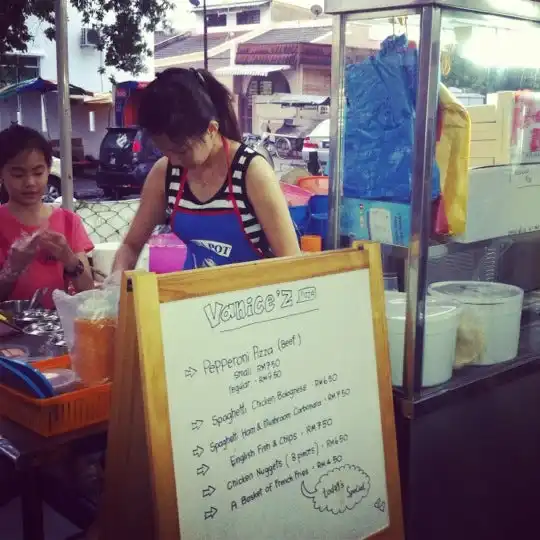 POT
Vanice'z Pizza
Pepperoni Pizza (Beef)
Small RM7.50
regular - RM9.50
Spaghetti Chicken Bolognese - RM6.50
Spaghetti Ham & Mushroom Carbonara - RM7.50
English Fish & Chips - RM7.50
Chicken Nuggets (8 pieces) - RM6.50
A Basket of French Fries - RM4.50
Today's
Special